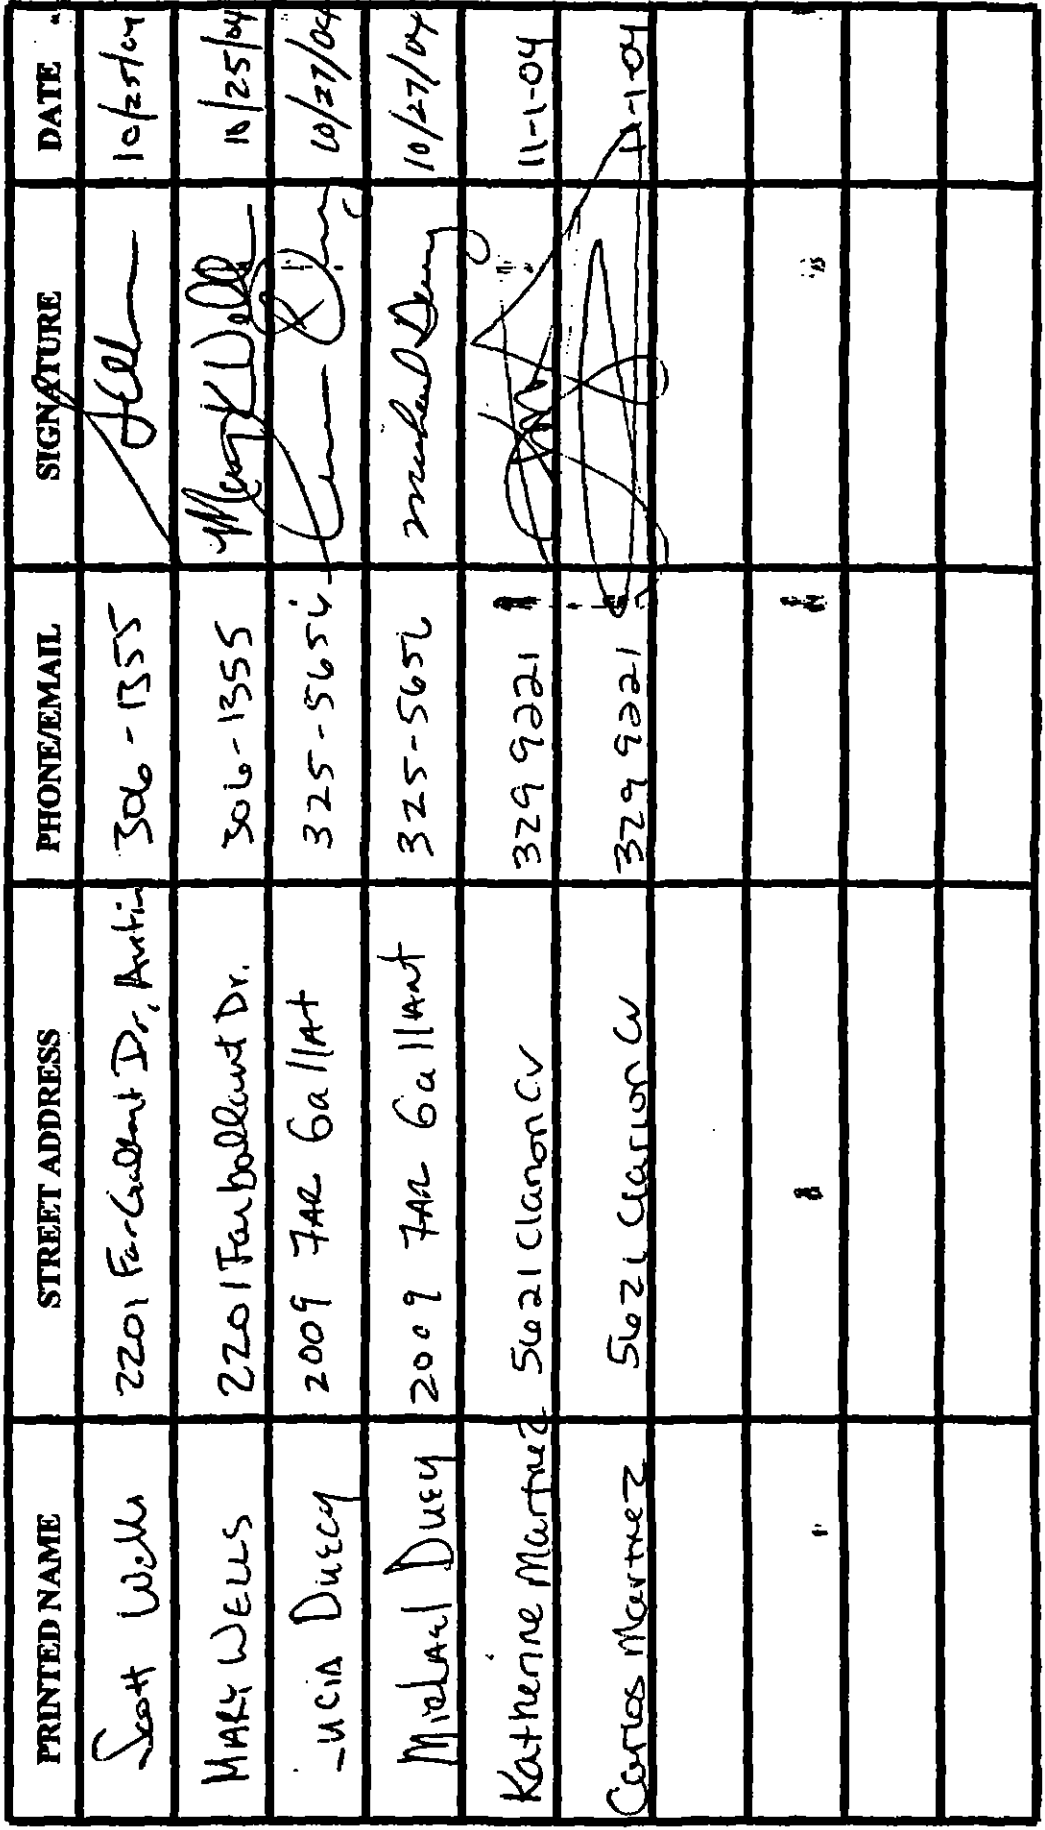 PRINTED NAME STREET ADDRESS PHONE/EMAIL SIGNATURE DATE
Scott Wells 2201 Far Gallant Dr, Austin 306-1355 10/25/04
MARY WELLS 2201 Far Gallant Dr. 306-1355 Mary K Wells 10/25/04
LUCIA DUECY 2009 FAR GallAnt 325-565 10/27/04
MichAel DUEY 2009 FAR GallAnt 325-565 Michael 10/27/04
Katherine Martinez 5621 Clarion Cv 329 9221 11-1-04
Carlos Martinez 5621 Clarion Cv 329 9221 11-1-04